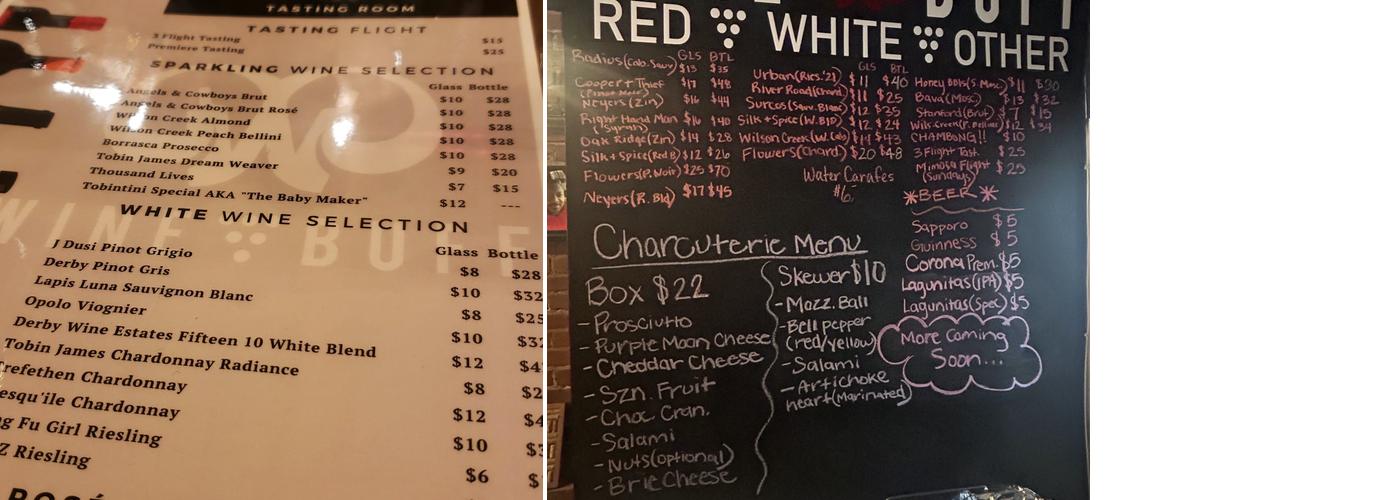 TASTING ROOM
TASTING FLIGHT
3 Flight Tasting $15
Premiere Tasting $25
SPARKLING WINE SELECTION
Glass Bottle
Angels & Cowboys Brut $10 $28
Angels & Cowboys Brut Rosé $10 $28
Wilson Creek Almond $10 $28
Wilson Creek Peach Bellini $10 $28
Borrasca Prosecco $10 $28
Tobin James Dream Weaver $9 $20
Thousand Lives $7 $15
Tobintini Special AKA "The Baby Maker" $12 ---
WHITE WINE SELECTION
Glass Bottle
J Dusi Pinot Grigio $8 $28
Derby Pinot Gris $10 $32
Lapis Luna Sauvignon Blanc $8 $25
Opolo Viognier $10
Derby Wine Estates Fifteen 10 White Blend $12
Tobin James Chardonnay Radiance $8
Trefethen Chardonnay $12
esqu'ile Chardonnay $10
g Fu Girl Riesling $6
Z Riesling
WINE BUFF
RED WHITE OTHER
GLS BTL
Radius(Cab. Sauv) $13 $35
Cooper + Thief $17 $48
(Pinot Noir)
Neyers(Zin) $16 $44
Right Hand Man $16 $40
(Syrah)
Oak Ridge(Zin) $14 $28
Silk + Spice(Red B) $12 $26
Flowers(P. Noir) $25 $70
Neyers(R. Bld) $17 $45
GLS BTL
Urban(Ries.'21) $11 $40
River Road(Chard) $11 $25
Surcos(Sauv. Blanc) $12 $35
Silk + Spice(W. BlD) $12 $24
Wilson Creek(W. Cab) $14 $43
Flowers(Chard) $20 $48
Water Carafes
$6
Honey Bbls(S. Mosc) $11 $30
Bava(Mosc) $13 $32
Stanford(Brut) $7 $15
Wils. Creek(P. Bellini) $12 $34
CHAMBONG!! $10
3 Flight Tast. $25
Mimosa Flight $25
(Sundays)
*BEER*
Sapporo $5
Guinness $5
Corona Prem. $5
Lagunitas(IPA) $5
Lagunitas(Spec) $5
More Coming
Soon...
Charcuterie Menu
Box $22
- Prosciutto
- Purple Moon Cheese
- Cheddar Cheese
- Szn. Fruit
- Choc. Cran.
- Salami
- Nuts(optional)
- Brie Cheese
Skewer $10
- Mozz. Ball
- Bell pepper
(red/yellow)
- Salami
- Artichoke
heart(Marinated)